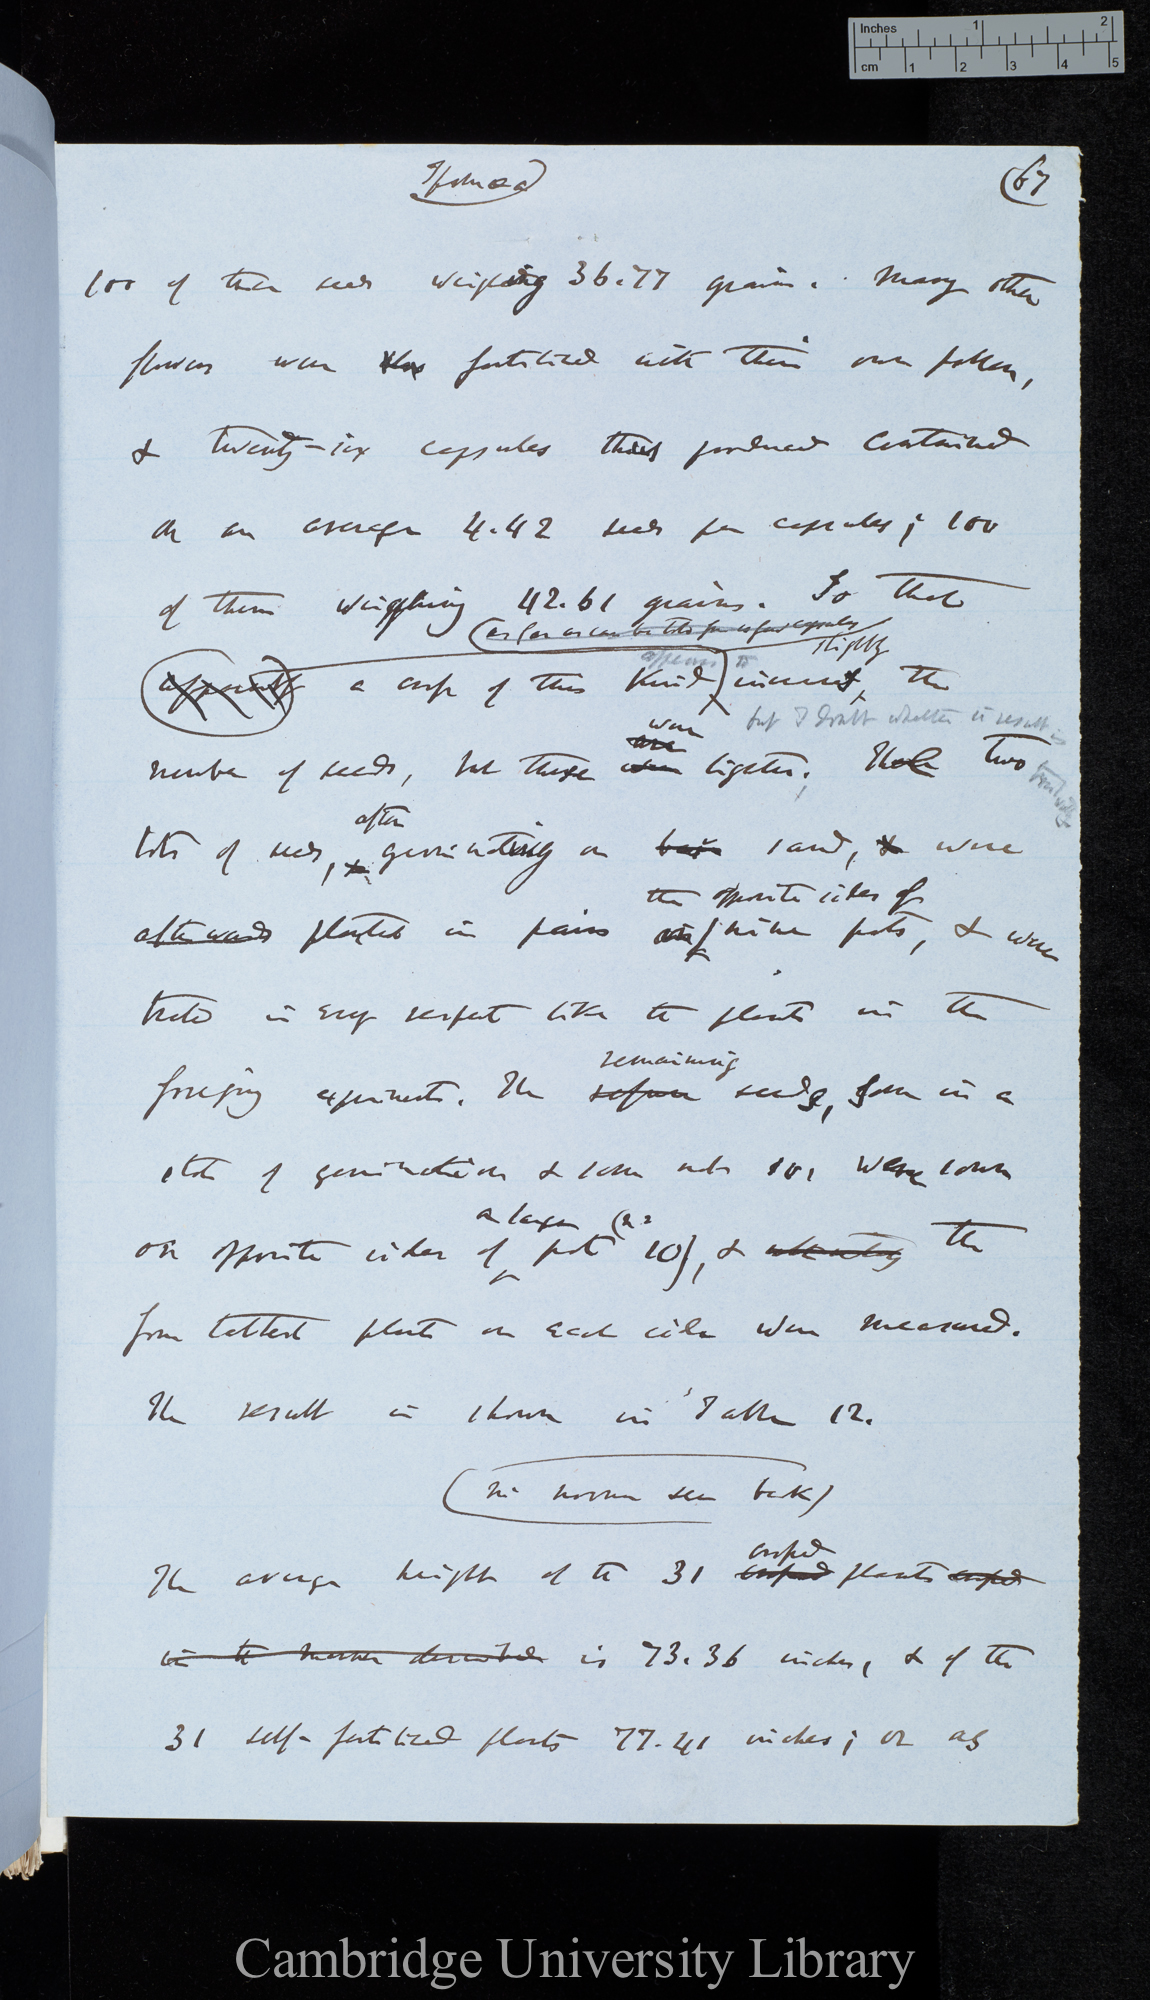 Inches 1 2
cm 1 2 3 4 5
Ipomœa
(67
100 of these seeds weighing 36.77 grains. Many other
flowers were fertilised with their own pollen,
& twenty-six capsules thus produced contained
on an average 4.42 seeds per capsules; 100
of them weighing 42.61 grains. So that
(as far as can be told from so few capsules
slightly
apparently a cross of this kind) increases the
appears to
but I doubt whether it result is
were
are
number of seeds, but these were lighter; These two
trustworthy
after
lots of seeds, & germinating on bare sand, & were
the opposite sides of
afterwards planted in pairs in nine pots, & were
treated in every respect like the plants in the
remaining
foregoing experiments. The seeds, some in a
state of germination & some not so, were sown
a large (no
on opposite sides of pot 10), & the
four tallest plants on each side were measured.
The result is shown in Table 12.
crossed
The average height of the 31 crossed plants crossed
in the manner described is 73.36 inches, & of the
31 self-fertilised plants 77.41 inches; or as
Cambridge University Library